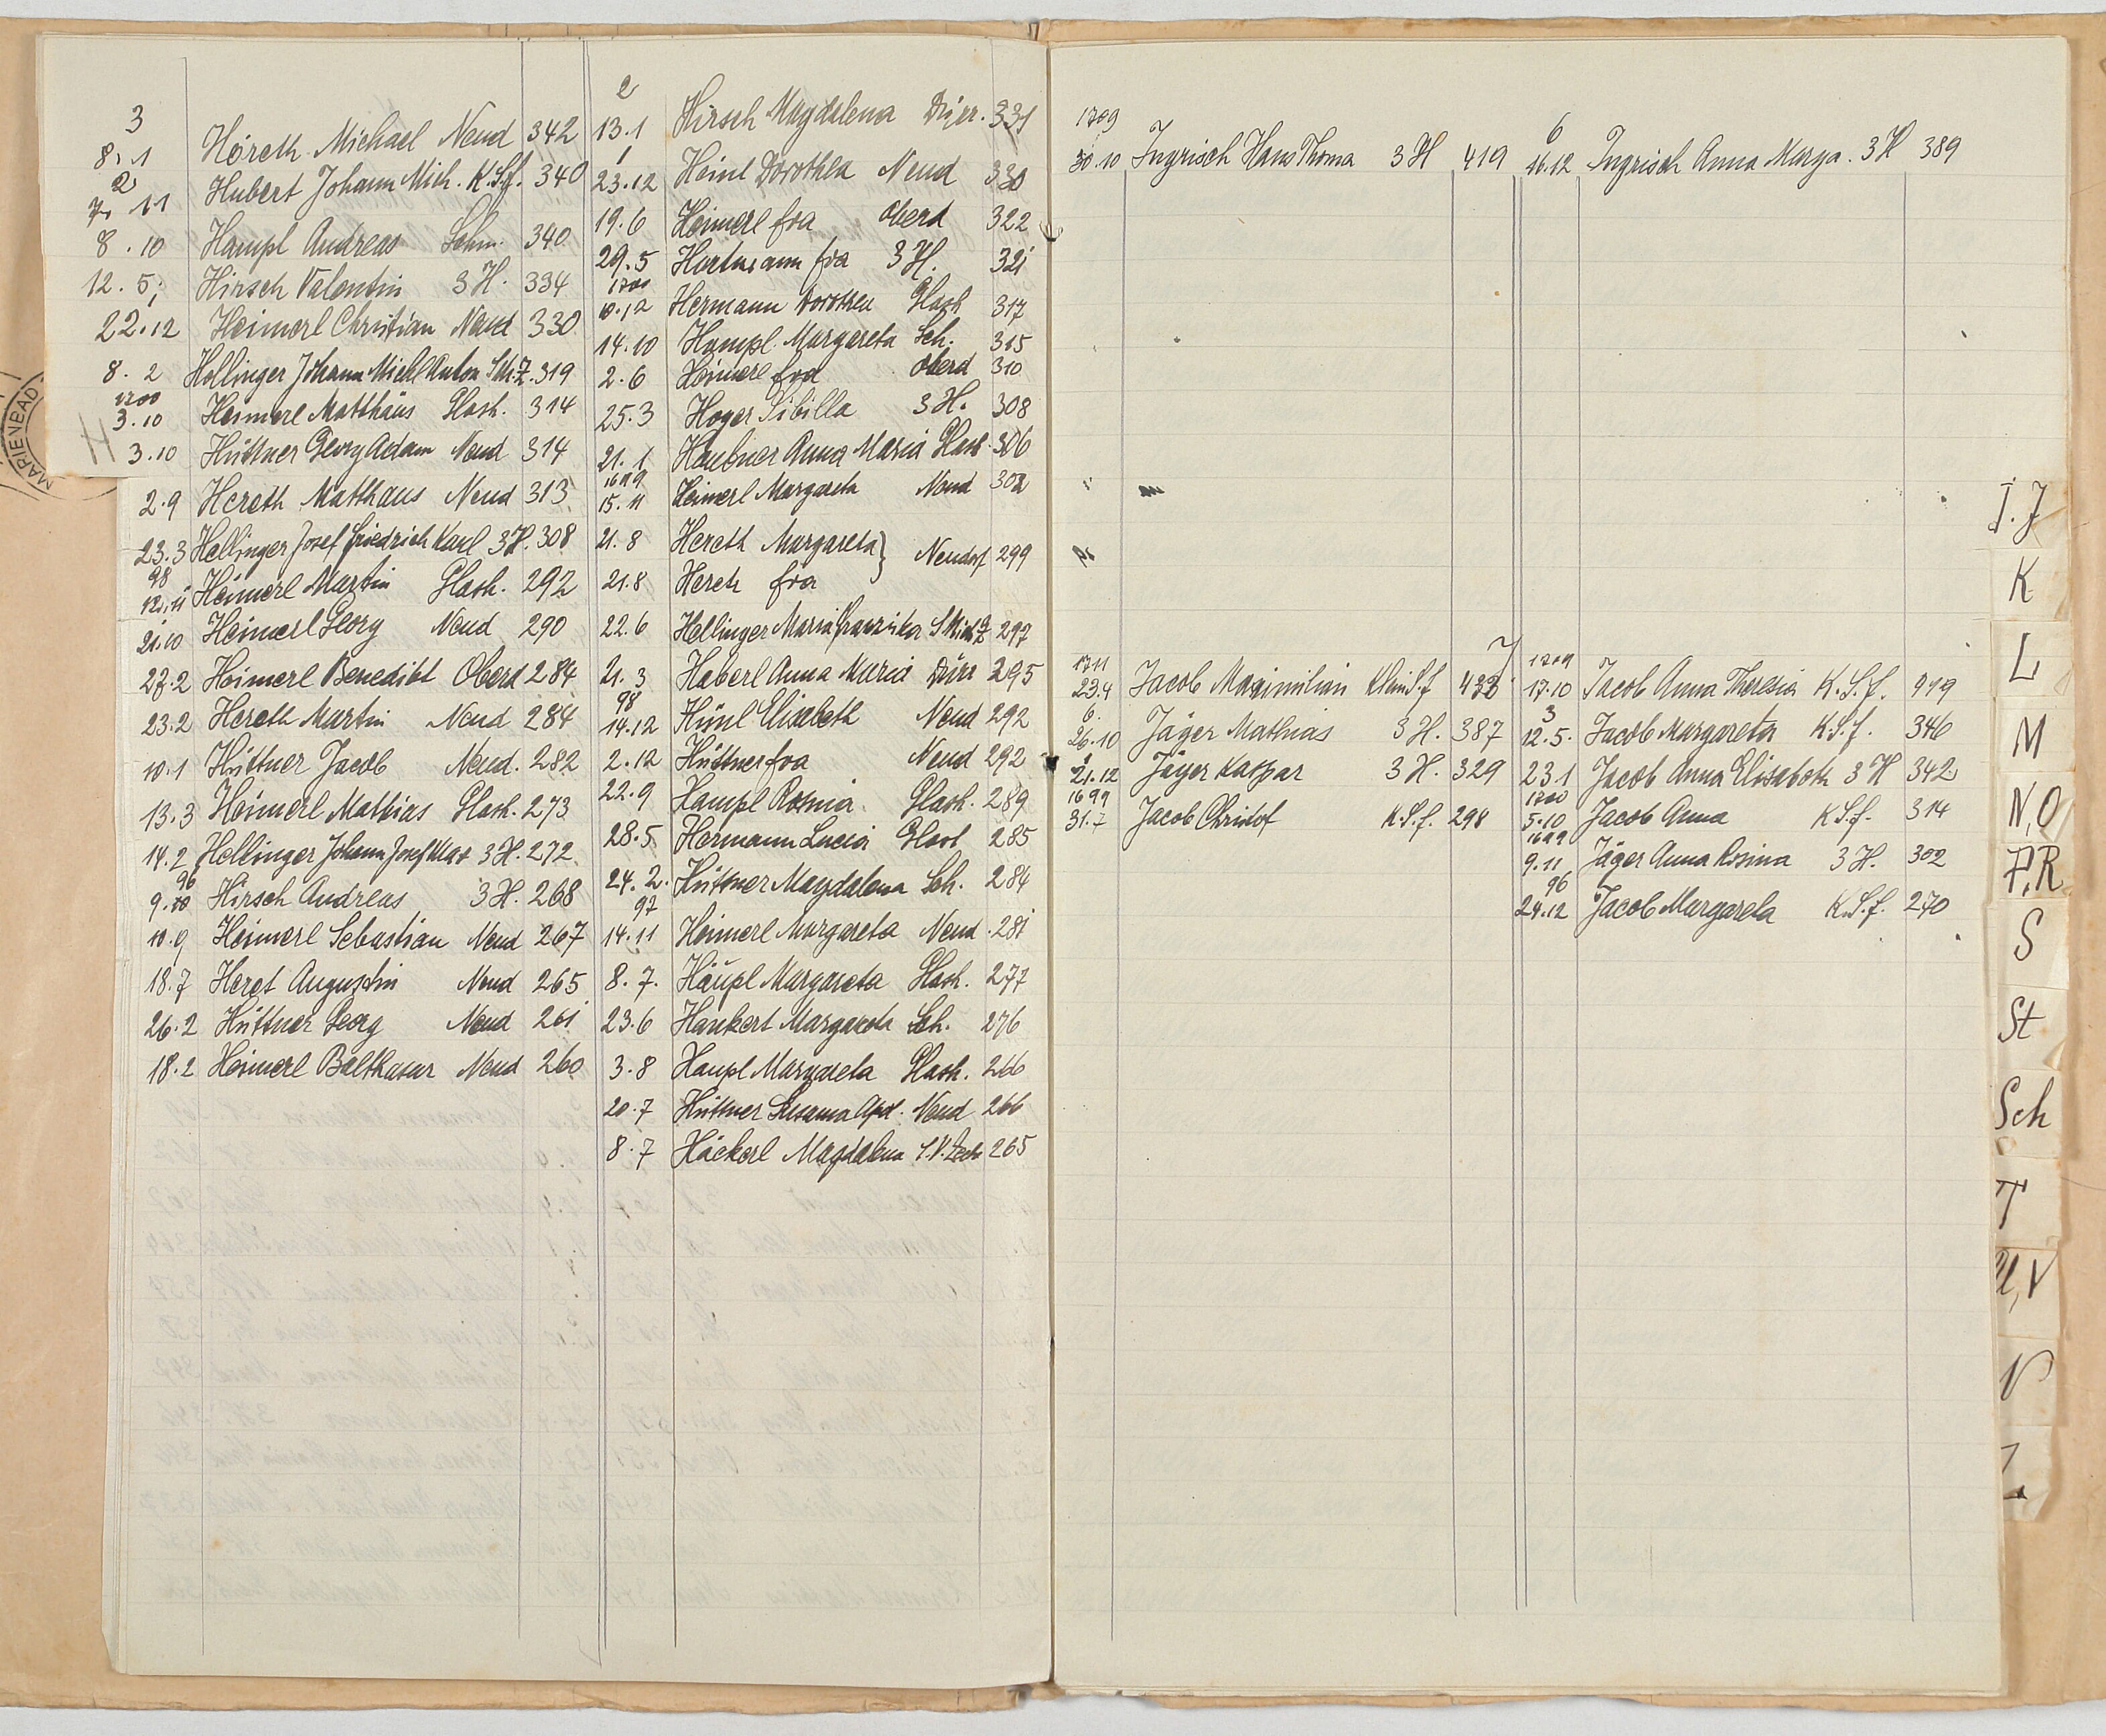 3
8.1 Höreth Michael Neud 342
2
7.11 Hubert Johann Mich. K.S.f. 340
8.10 Hampl Andreas Schm. 340
12.5. Hirsch Valentin 3 H. 334
22.12 Heimerl Christian Neud 330
8.2 Hellinger Johann Michl Anton 319
1700
3.10 Heimerl Matthäus Glash. 314
3.10 Hüttner Georg Adam Neud 314
2.9 Hereth Matthäus Neud 313
23.3 Hellinger Josef Friedrich Karl 3 H. 308
98
12.11 Heimerl Martin Glash. 292
21.10 Heimerl Georg Neud 290
27.2 Heimerl Benedikt Oberd 284
23.2 Hereth Martin Neud 284
10.1 Hüttner Jacob Neud. 282
13.3 Heimerl Mathias Glash. 273
14.2 Hellinger Johann Josef Max 3 H. 272
96
9.10 Hirsch Andreas 3 H. 268
10.9 Heimerl Sebastian Neud 267
18.7 Heret Augustin Neud 265
26.2 Hüttner Georg Neud 261
18.2 Heimerl Balthasar Neud 260
H
MARIENBAD
2
13.1 Hirsch Magdalena Dürr. 331
1
23.12 Heinl Dorothea Neud 330
19.6 Heimerl fva Oberd 322
29.5 Hartmann fva 3 H. 321
1700
10.12 Hermann Dorothea Glash 317
14.10 Hampl Margareta Sch. 315
2.6 Heimerl fva Oberd 310
25.3 Hoyer Sibilla 3 H. 308
21.1 Haubner Anna Maria Glash. 306
1699
15.11 Heimerl Margareta Neud 302
21.8 Hereth Margareta } Neudorf 299
21.8 Hereth fva
22.6 Hellinger Maria Franziska 297
21.3 Haberl Anna Maria Dürr 295
98
14.12 Hünl Elisabeth Neud 292
2.12 Hüttner fva Neud 292
22.9 Hampl Rosina Glash. 289
28.5 Hermann Lucia Glash 285
24.2. Hüttner Magdalena Sch. 284
97
14.11 Heimerl Margareta Neud. 281
8.7. Häupl Margareta Glash. 277
23.6 Hankert Margareta Sch. 276
3.8 Haupl Margareta Glash. 266
20.7 Hüttner Susanna Apol. Neud 266
8.7 Häckerl Magdalena 265
1709
30.10 Ingrisch Hans Thoma 3 H 419
6
16.12 Ingrisch Anna Marga. 3 H 389
J
1711
23.4 Jacob Maximilian Klein S.f 433
6.
26.10 Jäger Mathias 3 H. 387
1
21.12 Jäger Kaspar 3 H. 329
1699
31.7 Jacob Christof K.S.f. 298
1709
17.10 Jacob Anna Theresia K.S.f. 419
3
12.5. Jacob Margareta K.S.f. 346
23.1 Jacob Anna Elisabeth 3 H 342
1700
5.10 Jacob Anna K.S.f. 314
1699
9.11 Jäger Anna Rosina 3 H. 302
96
24.12 Jacob Margareta K.S.f. 270
I.J
K
L
M
N,O
P,R
S
St
Sch
T
U,V
W
Z